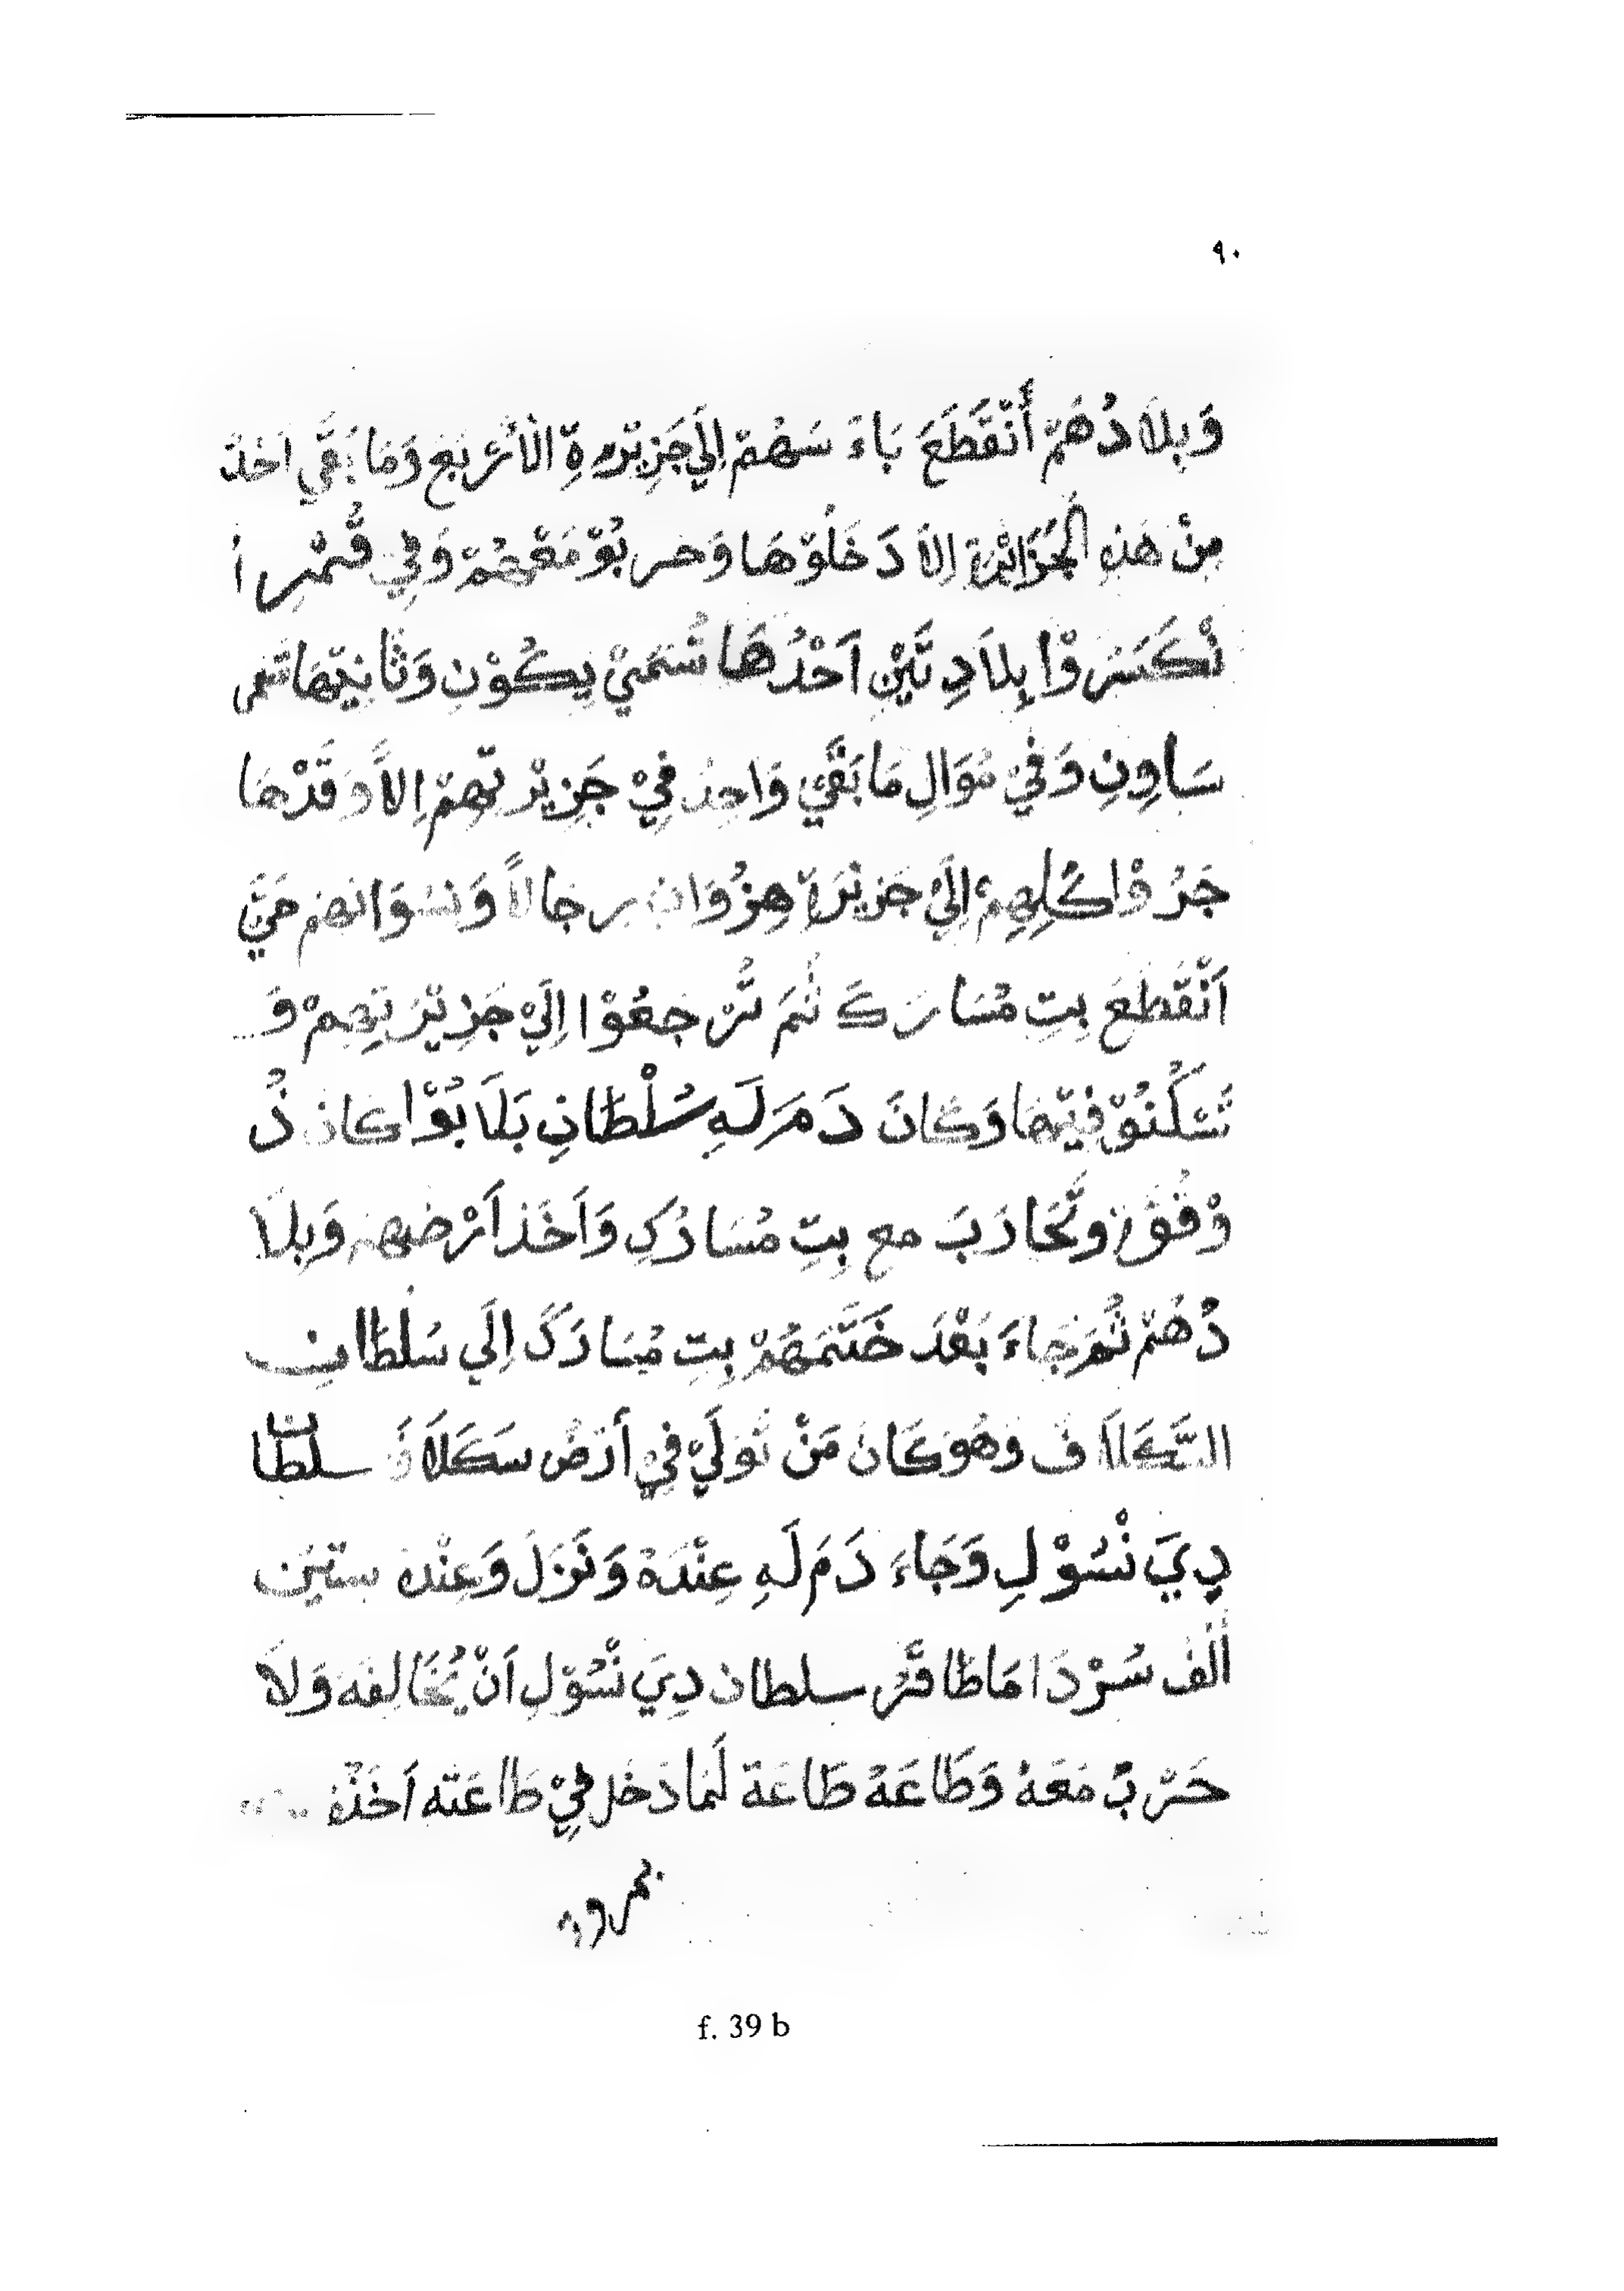 ٩٠
وَبِلاَدُهُمْ أَنْقَطَعَ بَاءَ سَهُمْ إِلَي جَزِيْرَةِ الْأَرْبَعِ وَمَا بَقَّي اَحَدٌ
مِنْ هَذِهِ الْجَزَائِرَة اِلاَّ دَخَلُوْهَا وَحَربُوْ مَعَهُمْ وَفِي قُمْرِ أ
نْكَسَرُوْا بِلاَدِ تَيْنِ اَحْدُهَا تُسَمَيْ يِكُوْنِ وَثَانِيْهَا تسمى
سَاوِنِ وَفِيْ مُوَالِ مَا بَقَّيَ وَاحِدٌ فِيْ جَزِيْرَتِهِمْ اِلاَّ وَقَدْهَا
جَرُوْا كُلِهِمْ اِلَيْ جَزِيْرَةِ هِزُوَانِ رِجَالاً وَنِسْوَانهم حَتَّيَ
اَنْقَطَعَ بِتِ مُسَارَكَ ثُمَ تُرْجَعُوْا اِلَيْ جَزِيْرَتِهِمْ وَ
تَسْكُنُوْ فِيْهَا وَكَانَ دَمَرَلَهِ سُلْطَانِ بَلَا بُوْا كَانَ ذُ
وْقُوَّةٍ وتَحَارَبَ مع بِتِ مُسَارُكِ وَاَخَذَ اَرْضهم وَبِلاَ
دُهُمْ ثُمَ جَاءَ بَعْدَ خَتَمَهُمْ بِتِ مُسَارَكَ اِلَي سُلطَانِ
السَّكَلاَفَ وَهُوَ كَانَ مَنْ تُوَلَيْ فِيْ أَرْضُ سَكَلاَفَ سلطان
دِيَ نْسُوْلِ وَجَاءَ دَمَرَلَهِ عِنْدَهْ وَنَزَلَ وَعِنْدَهُ سِتِيْنَ
أَلْف سُرْدَا مَا طَاقَرُ سلطان دِيَ نْسُوْلِ اَنْ يُخَالِفَهُ وَلاَ
حَرْبُ مَعَهُ وَطَاعَهُ طَاعَة لَمَا دَخَل فِيْ طَاعَتِه اَخَذَهُ
f. 39 b